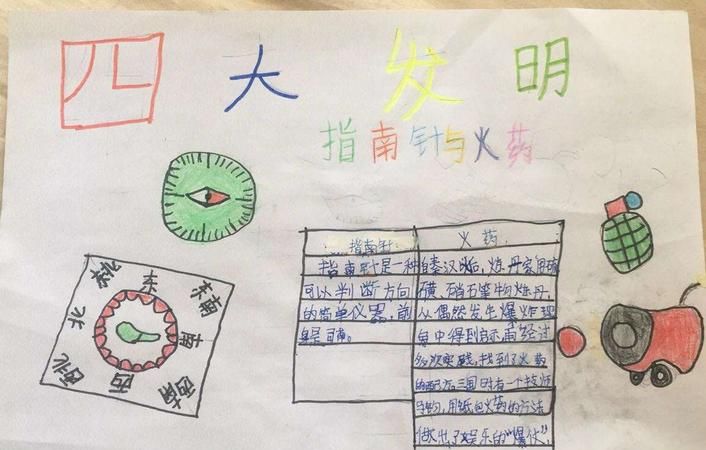 四大发明
指南针与火药
指南针
指南针是一种
可以判断方向
的简单仪器,前
身是司南。
火药
自秦汉以后,炼丹家用硫
磺、硝石等物炼丹,
从偶然发生爆炸现
象中得到启示再经过
多次实践,找到了火药
的配方三国时有一个技师
马钧,用纸包火药的方法
做出了娱乐的“爆仗”,
东
东南
南
西南
西
西北
北